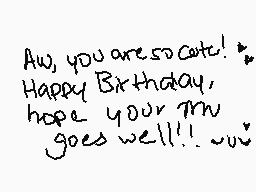 Aw, you are so cute! ♥♥
Happy Birthday,
hope your
goes well!! ♥u♥